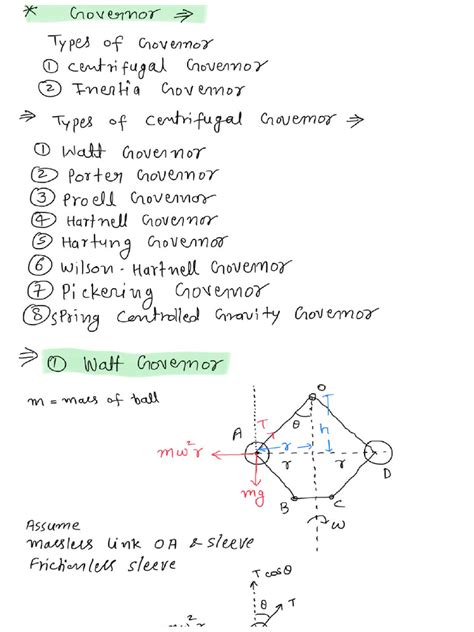 * Governor ⇒
Types of Governor
① Centrifugal Governor
② Inertia Governor
⇒ Types of Centrifugal Governor ⇒
① Watt Governor
② Porter Governor
③ Proell Governor
④ Hartnell Governor
⑤ Hartung Governor
⑥ Wilson-Hartnell Governor
⑦ Pickering Governor
⑧ Spring Controlled Gravity Governor
⇒ ① Watt Governor
m = mass of ball
O
T
θ
h
A
r
mω²r
r
r
D
mg
B
C
ω
Assume
Massless link OA & sleeve
Frictionless sleeve
T cosθ
θ
T
mω²r